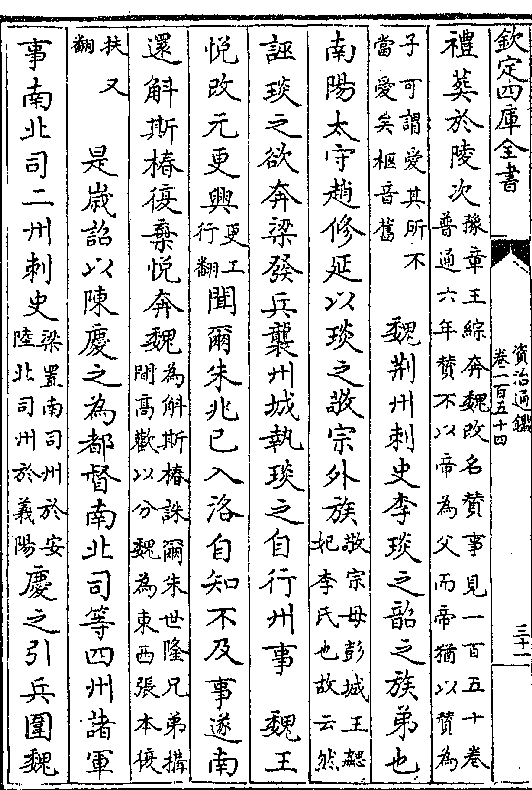 欽定四庫全書 資治通鑑 卷一百五十四 三十一
禮葬於陵次 豫章王綜奔魏改名賛事見一百五十卷
普通六年賛不以帝為父而帝猶以賛為
子可謂愛其所不
當愛矣柩音舊 魏荆州刺史李琰之韶之族弟也
南陽太守趙修延以琰之敬宗外族 敬宗母彭城王勰
妃李氏也故云然
誣琰之欲奔梁發兵襲州城執琰之自行州事 魏王
悦改元更興 更工
行翻 聞爾朱兆已入洛自知不及事遂南
還斛斯椿復棄悦奔魏 為斛斯椿誅爾朱世隆兄弟構
間高歡以分魏為東西張本復
扶又
翻 是嵗詔以陳慶之為都督南北司等四州諸軍
事南北司二州刺史 梁置南司州於安
陸北司州於義陽 慶之引兵圍魏